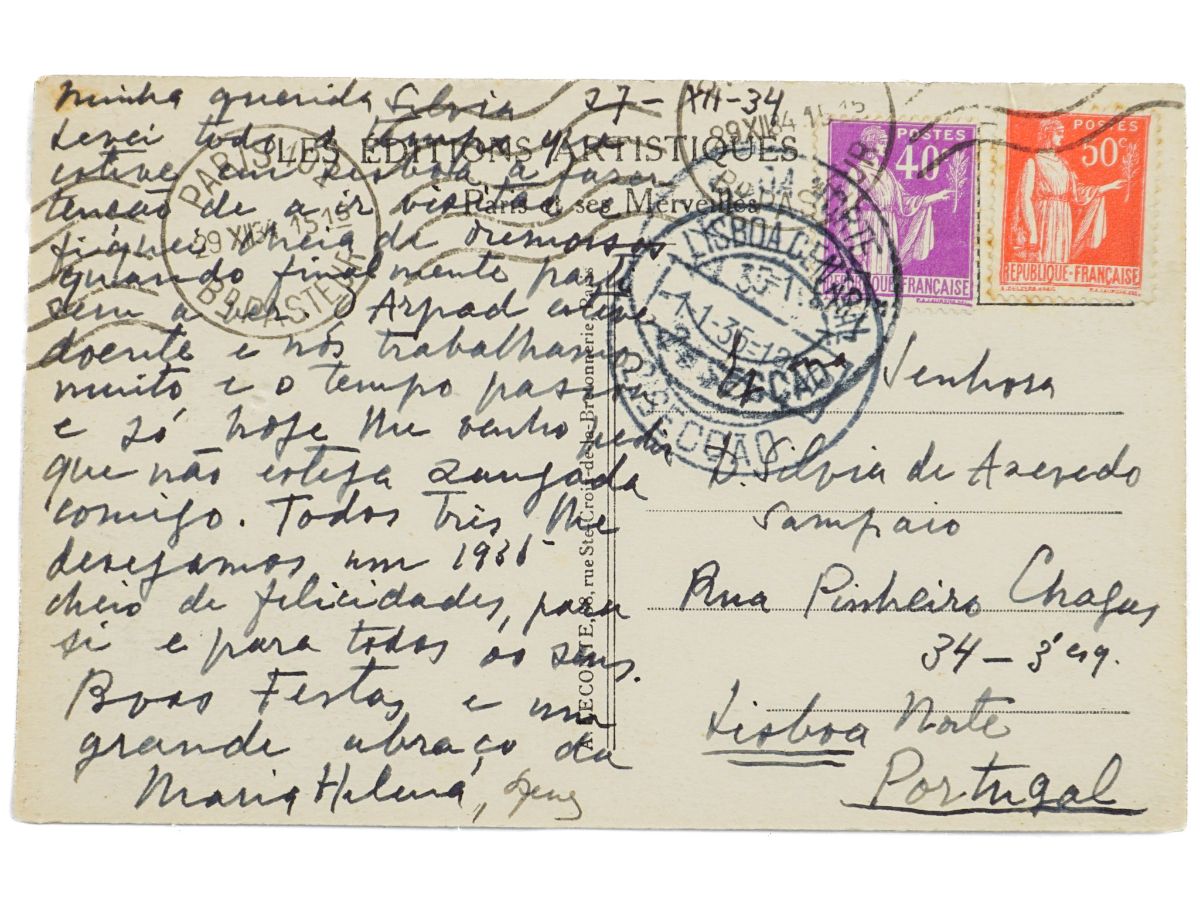 Minha querida Silvia 27-XII-34
Levei todo o tempo que
estive em Lisboa a fazer
tenção de a ir visitar
fiquei cheia de remorsos
quando finalmente parti
sem a ver. O Arpad esteve
doente e nós trabalhamos
muito e o tempo passou
e só hoje lhe venho pedir
que não esteja zangada
comigo. Todos três lhe
desejamos um 1935
cheio de felicidades, para
si e para todos os seus.
Boas Festas e um
grande abraço da
Maria Helena,
LES ÉDITIONS ARTISTIQUES
Paris et ses Merveilles
A. LECONTE, 38, rue Ste-Croix-de-la-Bretonnerie
PARIS
29 XII 34 15-15
Bd PASTEUR
29 XII 34 15-15
LISBOA CENTRAL
1-35-1
2ª SECÇÃO
POSTES
40c
RÉPUBLIQUE-FRANÇAISE
POSTES
50c
RÉPUBLIQUE-FRANÇAISE
Senhora
D. Silvia de Azevedo
Sampaio
Rua Pinheiro Chagas
34 - 3º esq.
Lisboa Norte
Portugal